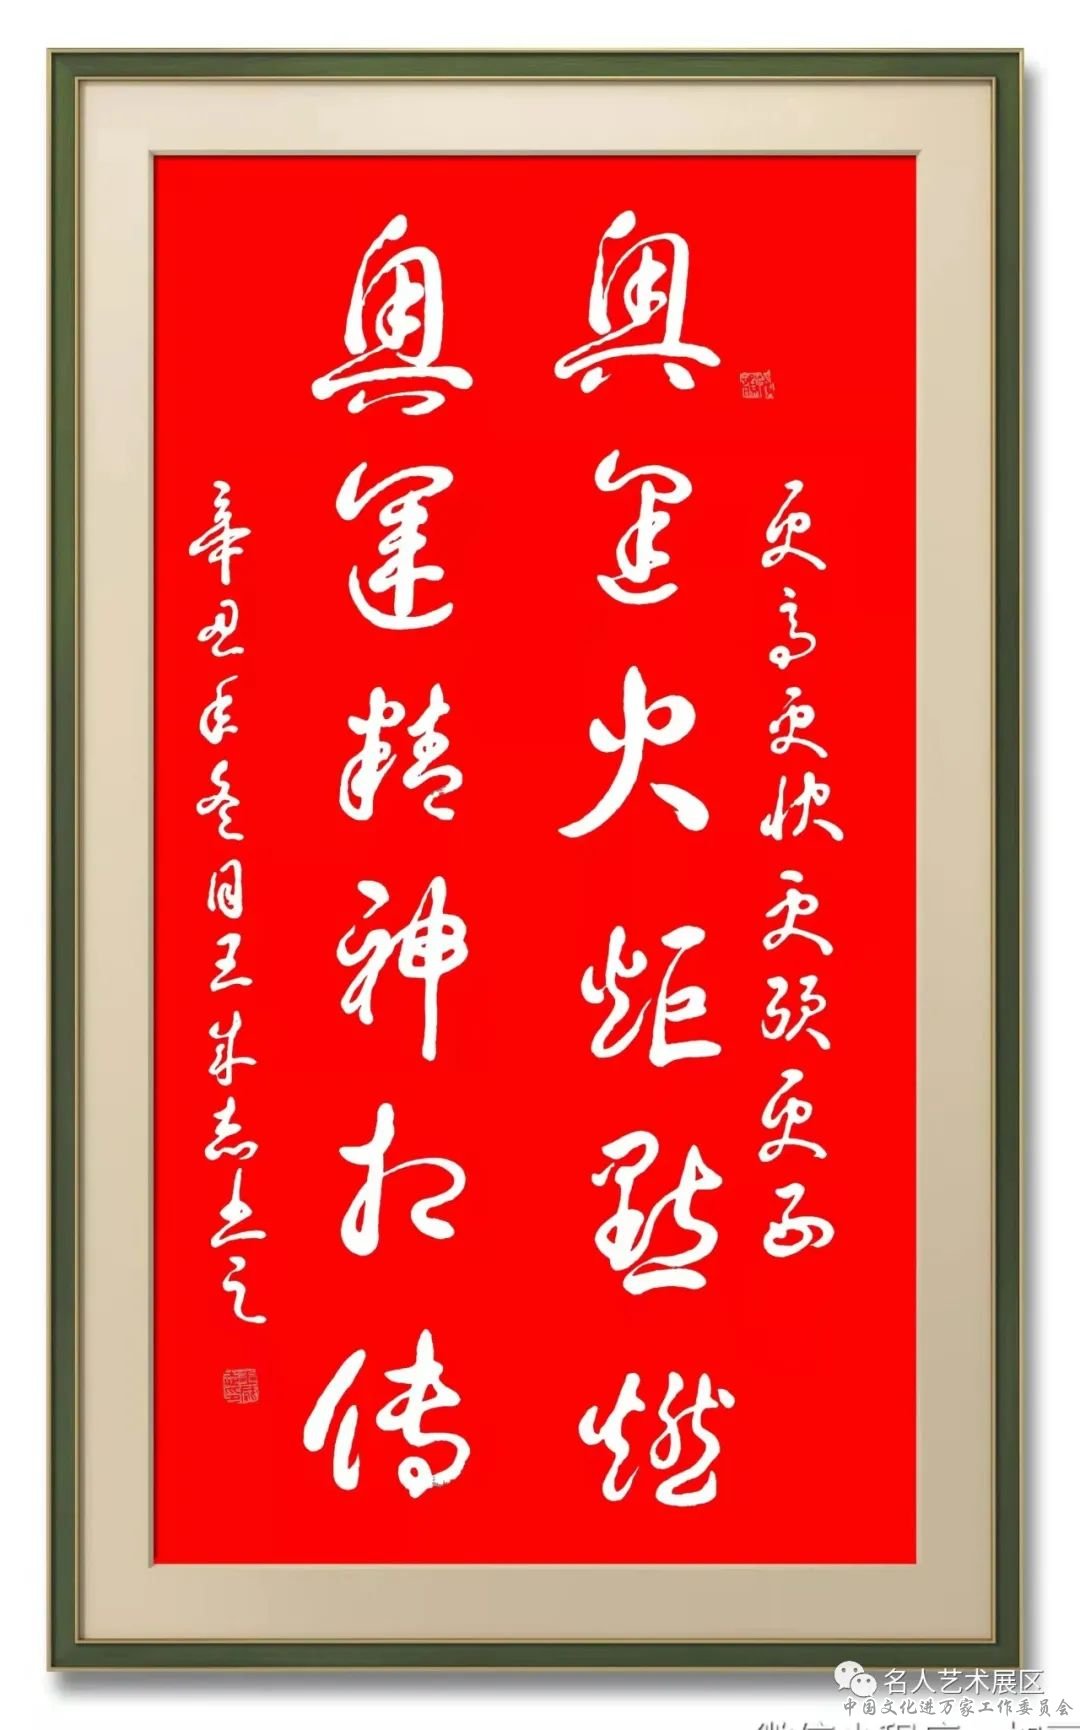 更高更快更强更
奥運火炬點燃
奥運精神相傳
辛丑年冬月王成志书之
名人艺术展区
中国文化进万家工作委员会